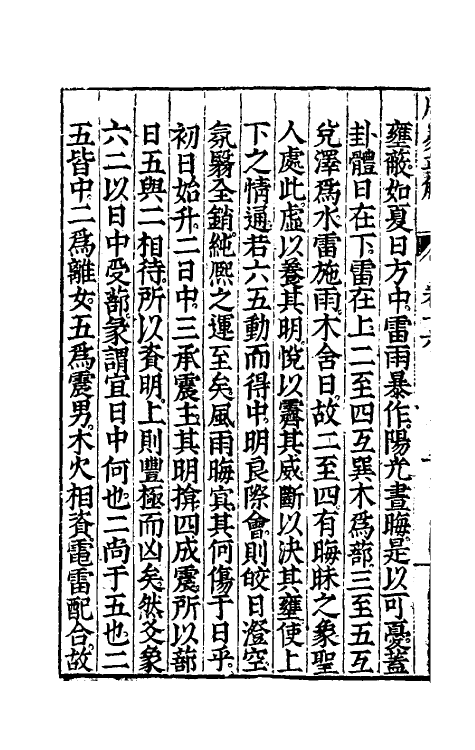 壅蔽如夏日方中雷雨暴作陽光晝晦是以可憂蓋
卦體日在下雷在上二至四互巽木為蔀三至五互
兌澤為水雷施雨木舍日故二至四有晦昧之象聖
人處此虛以養其明悅以霽其威斷以決其壅使上
下之情通若六五動而得中明良際會則皎日澄空
氛翳全銷純熙之運至矣風雨晦冥其何傷于日乎
初日始升二日中三承震主其明揜四成震所以蔀
日五與二相待所以資明上則豐極而凶矣然爻象
六二以日中受蔀彖謂宜日中何也二尚于五也二
五皆中二為離女五為震男木火相資電雷配合故